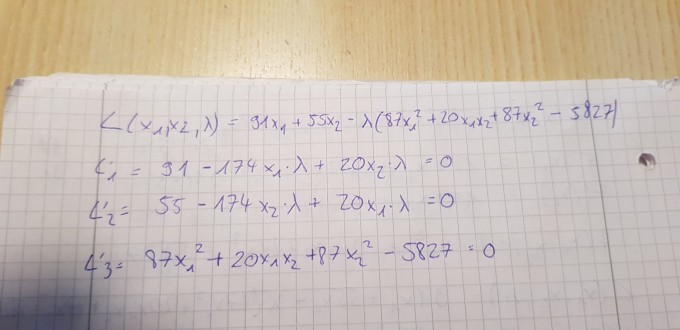 L(x₁,x₂,λ) = 91x₁ + 55x₂ - λ(87x₁² + 20x₁x₂ + 87x₂² - 5827)
L'₁ = 91 - 174x₁·λ + 20x₂·λ = 0
L'₂ = 55 - 174x₂·λ + 20x₁·λ = 0
L'₃ = 87x₁² + 20x₁x₂ + 87x₂² - 5827 = 0